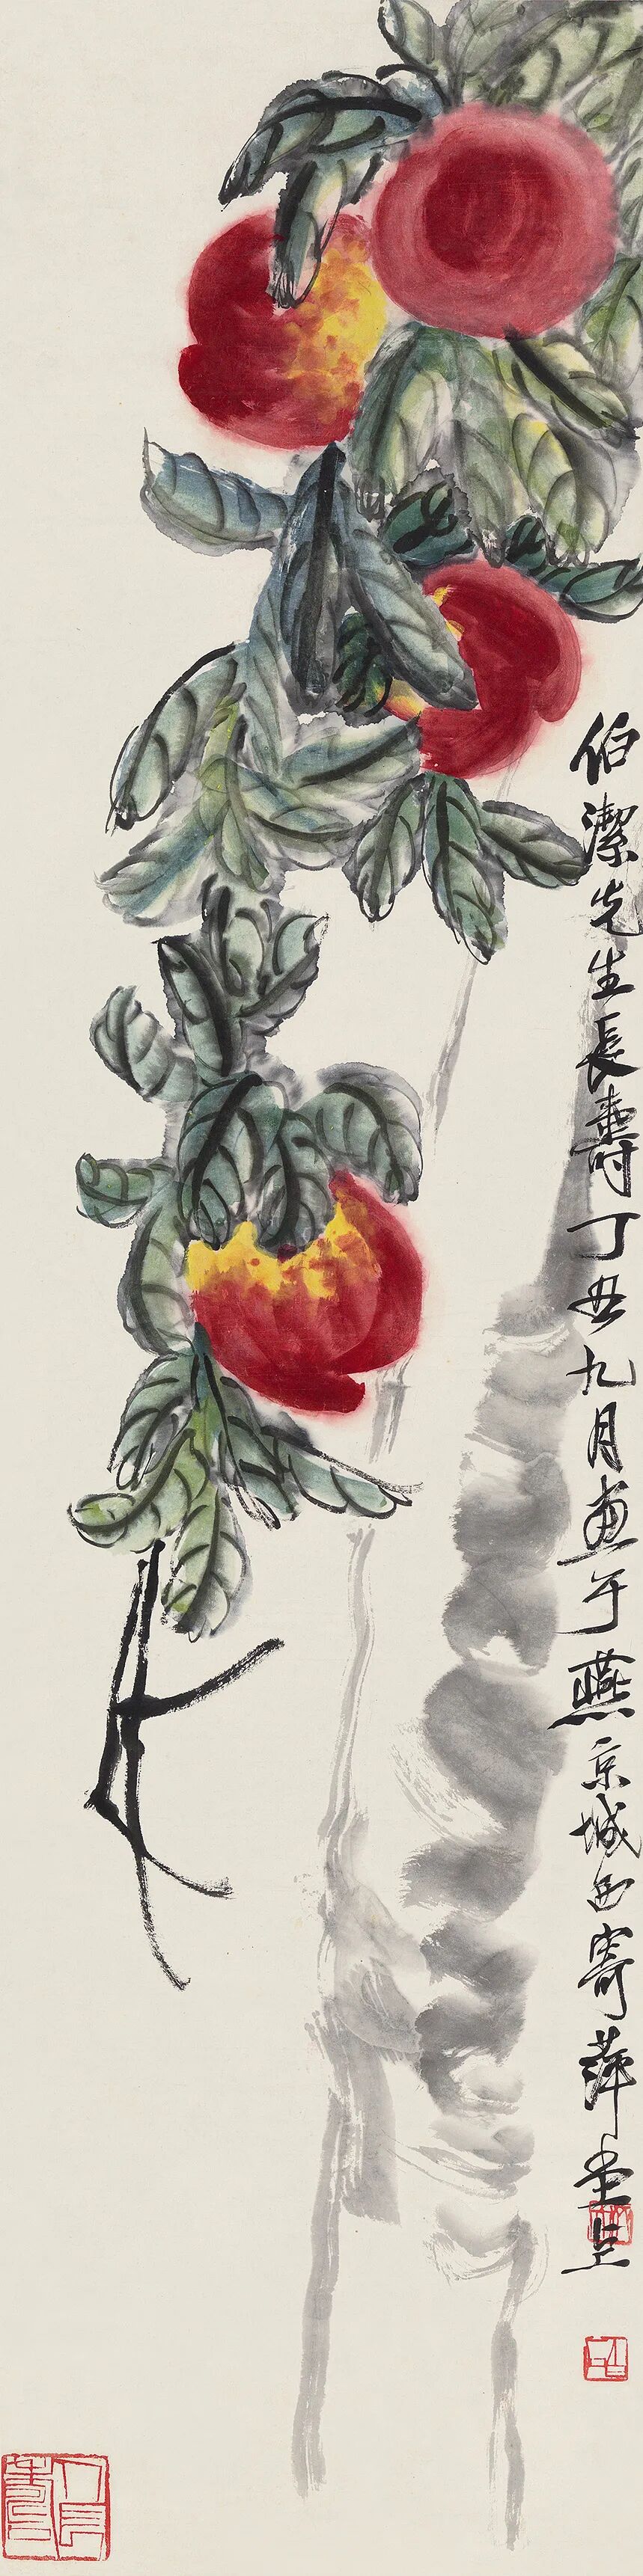 伯潔先生長壽丁丑九月畫于燕京城西寄萍堂上
人長壽